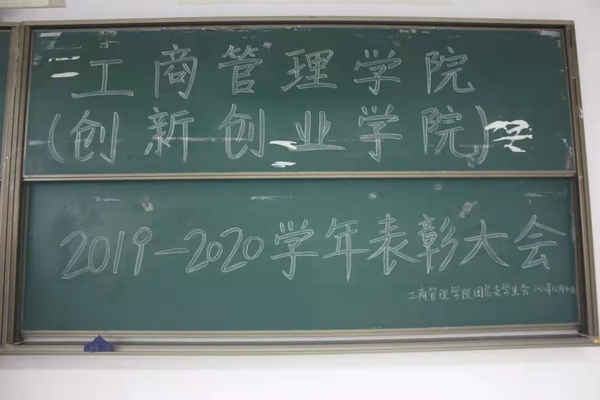 工商管理学院
(创新创业学院)
2019-2020学年表彰大会
工商管理学院团总支学生会